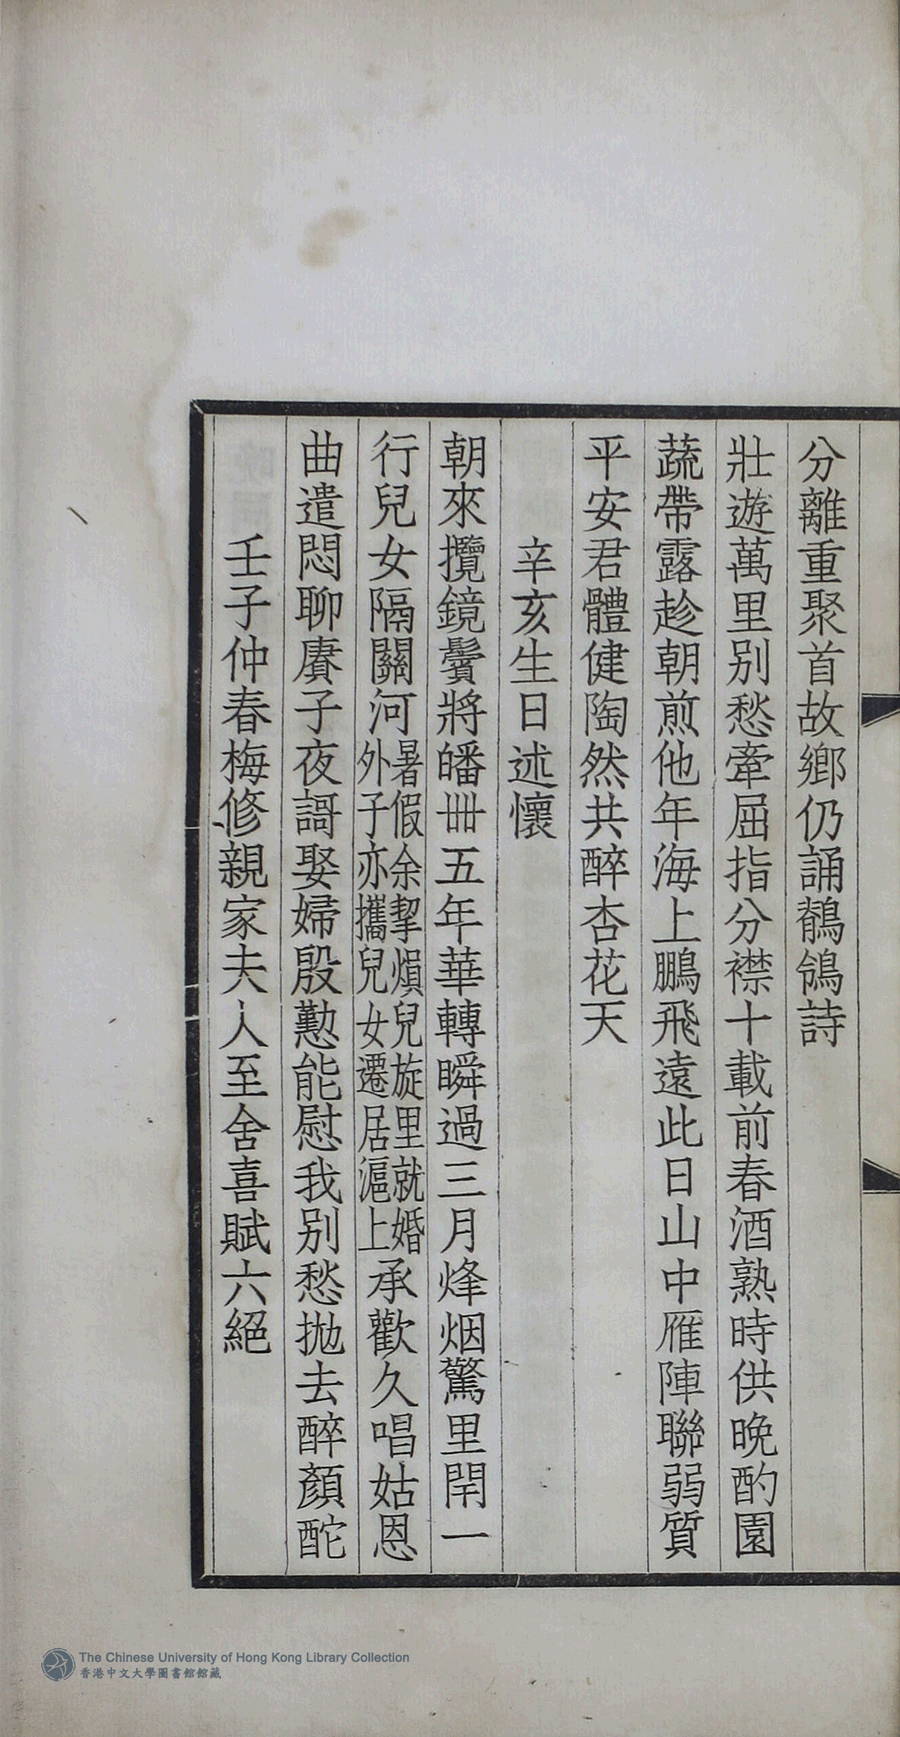 分離重聚首故鄉仍誦鶺鴒詩
壯遊萬里別愁牽屈指分襟十載前春酒熟時供晚酌園
蔬帶露趁朝煎他年海上鵬飛遠此日山中雁陣聯弱質
平安君體健陶然共醉杏花天
辛亥生日述懷
朝來攬鏡鬢將皤卌五年華轉瞬過三月烽烟驚里閈一
行兒女隔關河暑假余挈熉兒旋里就婚外子亦攜兒女遷居滬上承歡久唱姑恩
曲遣悶聊賡子夜謌娶婦殷懃能慰我別愁拋去醉顏酡
壬子仲春梅修親家夫人至舍喜賦六絕
The Chinese University of Hong Kong Library Collection
香港中文大學圖書館館藏